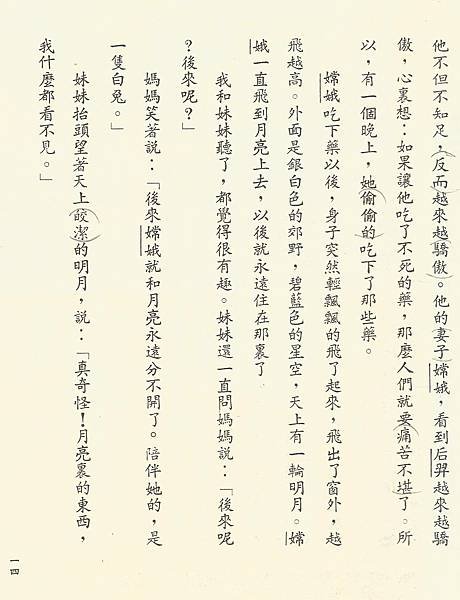 他不但不知足，反而越來越驕傲。他的妻子嫦娥，看到后羿越來越驕
傲，心裏想：如果讓他吃了不死的藥，那麼人們就要痛苦不堪了。所
以，有一個晚上，她偷偷的吃下了那些藥。
嫦娥吃下藥以後，身子突然輕飄飄的飛了起來，飛出了窗外，越
飛越高。外面是銀白色的郊野，碧藍色的星空，天上有一輪明月。嫦
娥一直飛到月亮上去，以後就永遠住在那裏了
我和妹妹聽了，都覺得很有趣。妹妹還一直問媽媽說：「後來呢
？後來呢？」
媽媽笑著說：「後來嫦娥就和月亮永遠分不開了。陪伴她的，是
一隻白兔。」
妹妹抬頭望著天上皎潔的明月，說：「真奇怪！月亮裏的東西，
我什麼都看不見。」
一四